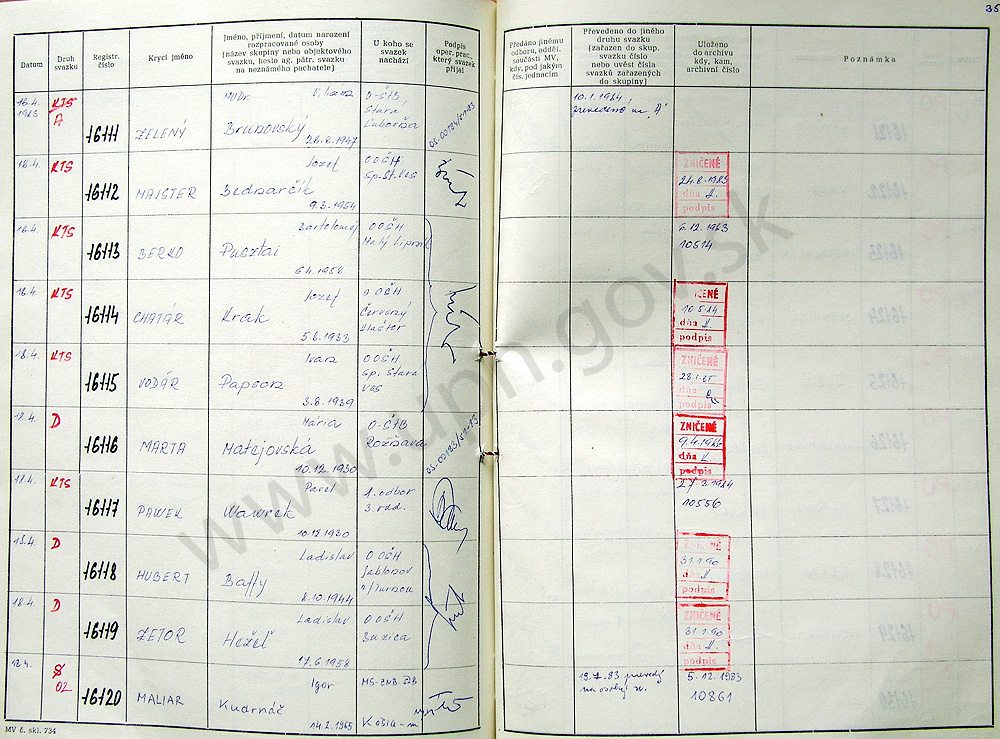 35
Datum
Druh svazku
Registr. číslo
Krycí jméno
Jméno, příjmení, datum narození
rozpracované osoby
(název skupiny nebo objektového
svazku, heslo ag. pátr. svazku
na neznámého pachatele)
U koho se
svazek
nachází
Podpis
oper. prac.,
který svazek
přijal
Předáno jinému
odboru, odděl.
součásti MV,
kdy, pod jakým
čís. jednacím
Převedeno do jiného
druhu svazku
(zařazen do skup.
svazku číslo
nebo uvést čísla
svazků zařazených
do skupiny)
Uloženo
do archivu
kdy, kam,
archivní číslo
Poznámka
18.4. 1983 KTS A 16111 ZELENÝ MUDr. Brunovský 26.8.1947 O-ŠtB Stará Ľubovňa
10.1.1984
prevedené na "A"
18.4. KTS 16112 MAJSTER Jozef Bednarčik 9.3.1954 OOŠH Sp.St.Ves
ZNIČENÉ
dňa
podpis
18.4. KTS 16113 BERKO Bartolomej Pusztai 6.4.1958 OOŠH Malý Lipník
6.12.1983
10514
18.4. KTS 16114 CHATÁR Jozef Krak 5.8.1933 OOŠH Červený Kláštor
ZNIČENÉ
10.5.84
dňa
podpis
18.4. KTS 16115 VODÁR Ivan Papson 3.8.1939 OOŠH Sp. Stará Ves
ZNIČENÉ
dňa
podpis
18.4. D 16116 MARTA Mária Matejovská 10.12.1930 O-ŠtB Rožňava
ZNIČENÉ
9.4.1986
dňa
podpis
18.4. KTS 16117 PAWEK Pavel Wawrek 10.12.1930 1. odbor 3. odd.
27.3.1984
10556
18.4. D 16118 HUBERT Ladislav Baffy 8.10.1944 OOŠH Jablonov n/Turňou
ZNIČENÉ
31.1.90
dňa
podpis
18.4. D 16119 ZETOR Ladislav Hežeľ 17.6.1958 OOŠH Buzica
ZNIČENÉ
31.1.90
dňa
podpis
18.4. S 02 16120 MALIAR Igor Kudrnáč 14.2.1965 MS-ZNB
5.12.1983
10861
MV č. skl. 734
www.upn.gov.sk